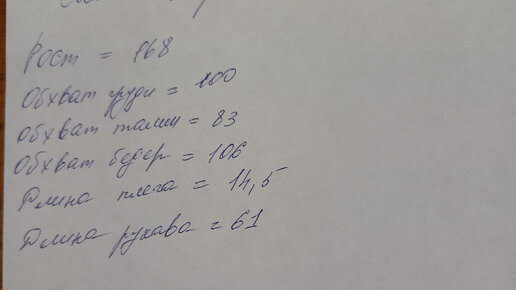 Рост = 168
Обхват груди = 100
Обхват талии = 83
Обхват бедер = 106
Длина плеча = 14,5
Длина рукава = 61